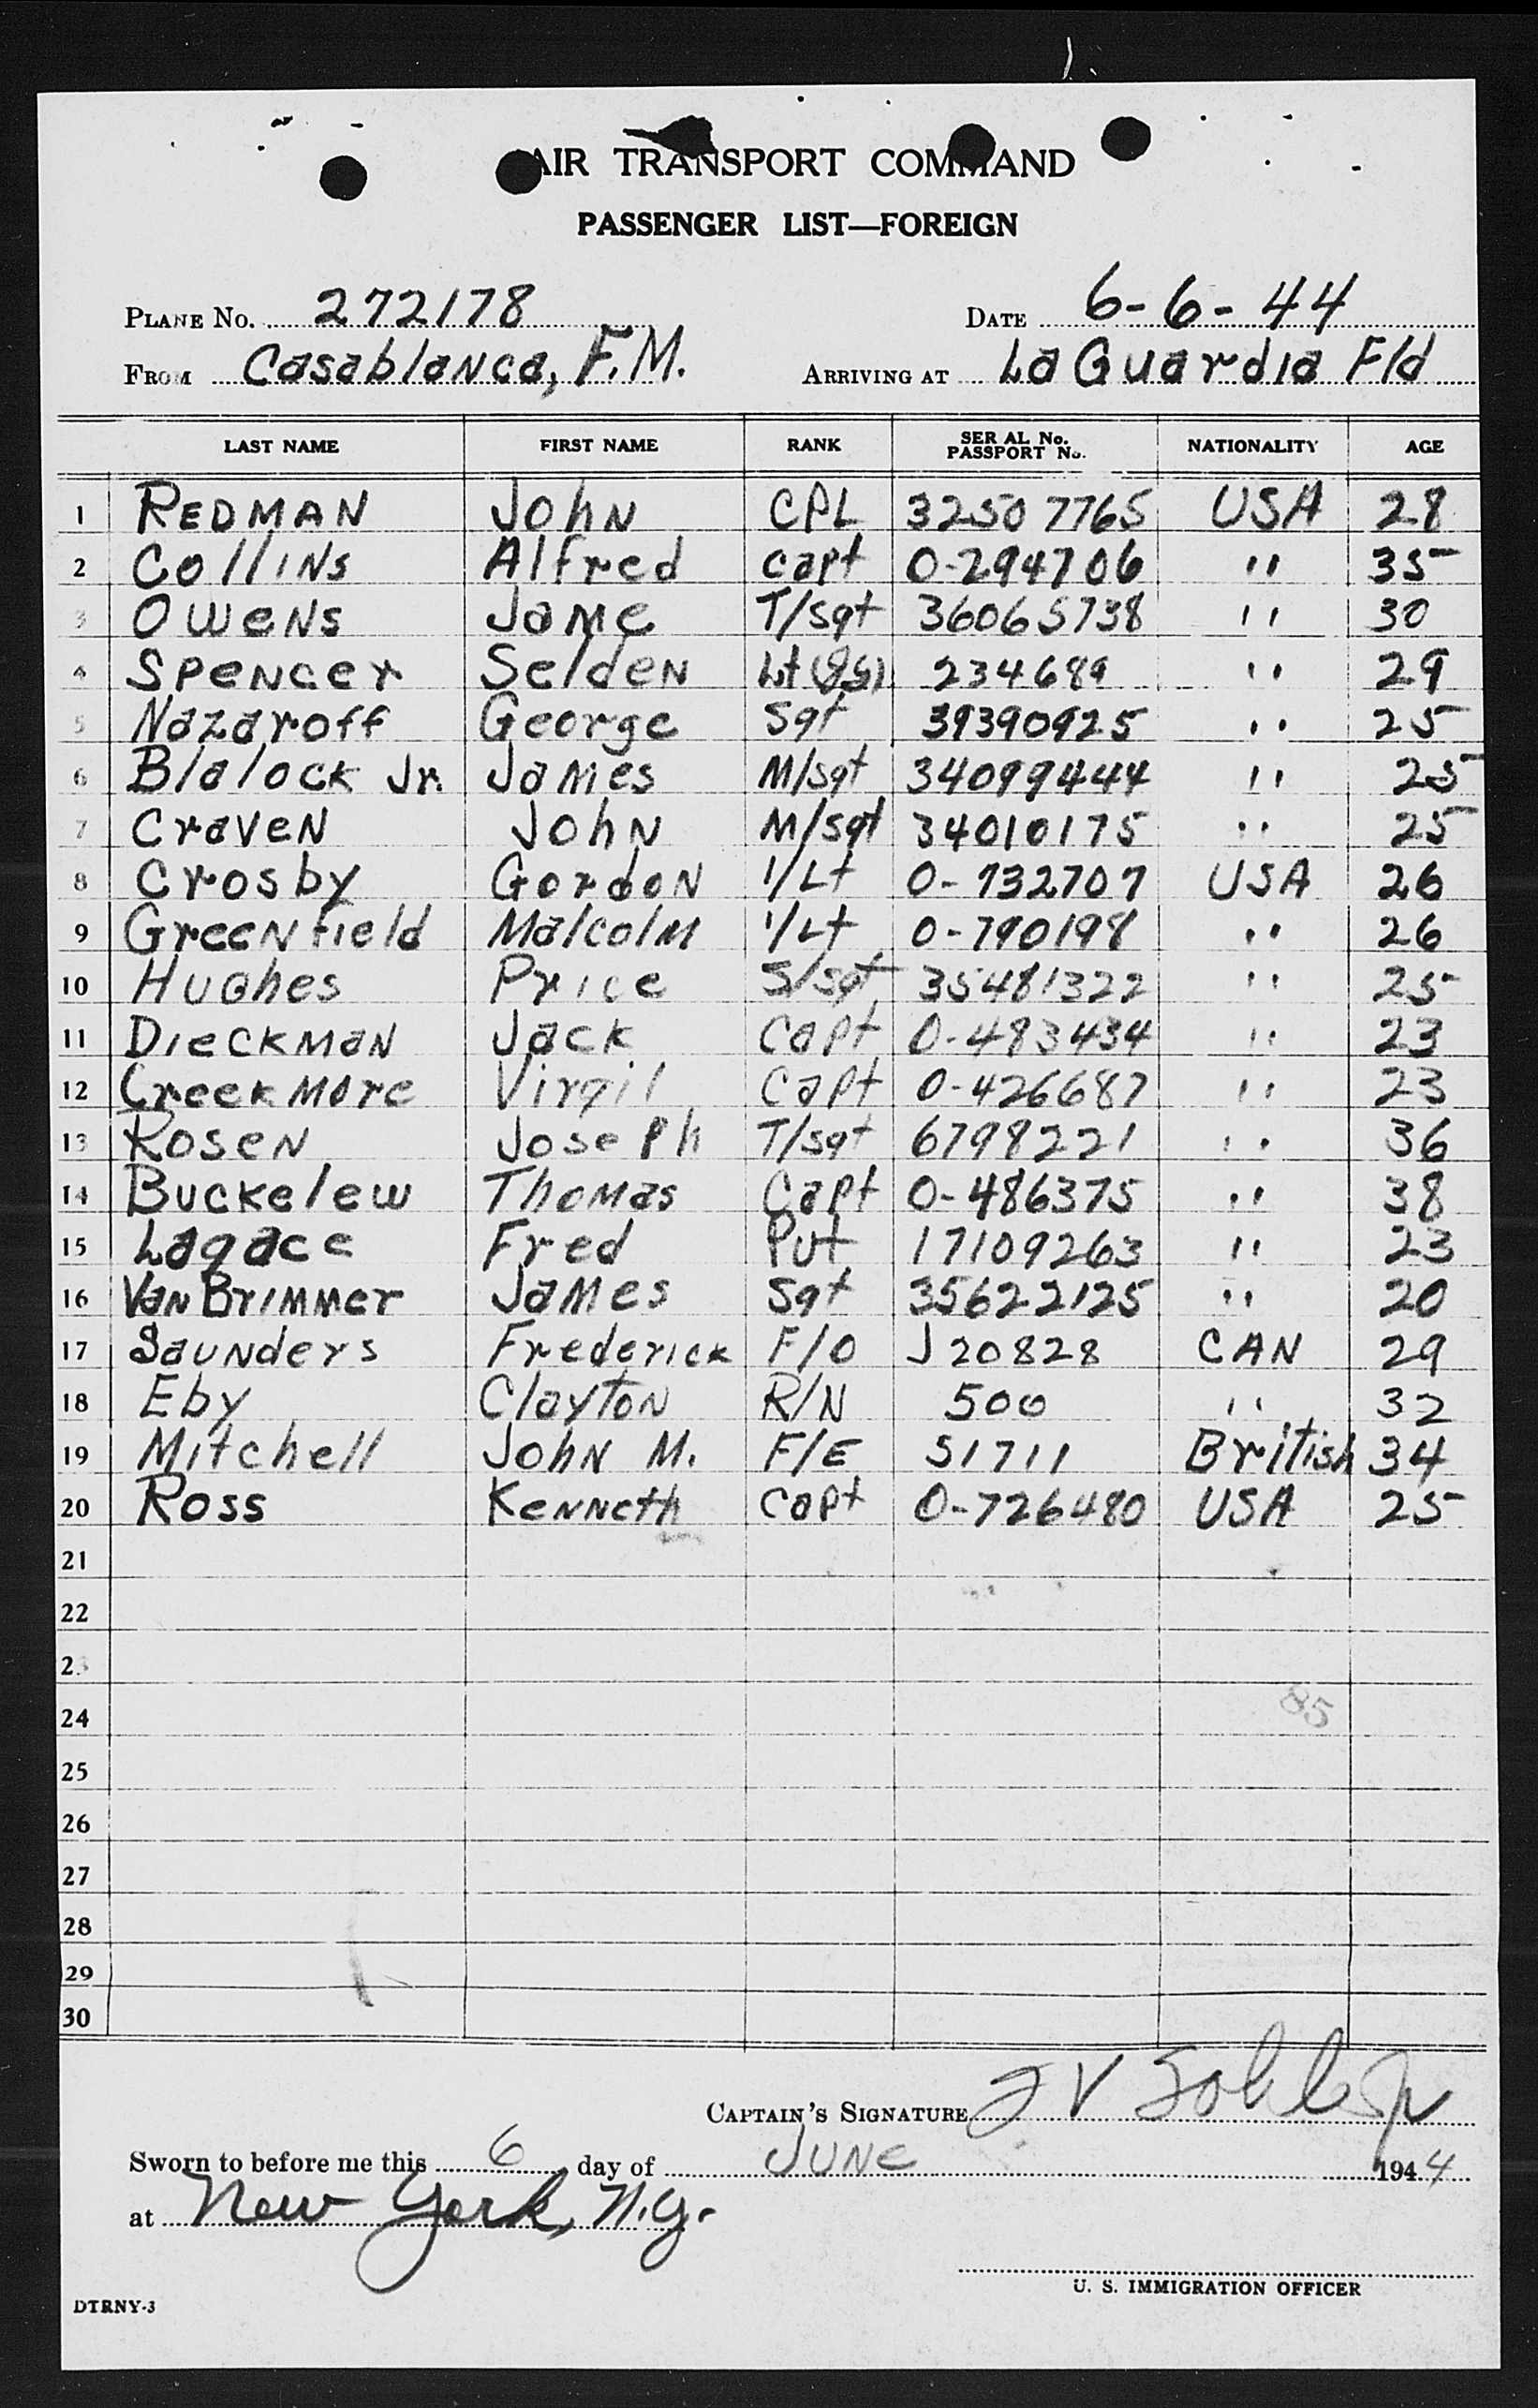 AIR TRANSPORT COMMAND
PASSENGER LIST—FOREIGN
PLANE No. 272178 DATE 6-6-44
FROM Casablanca, F.M. ARRIVING AT La Guardia Fld
LAST NAME FIRST NAME RANK SERIAL No. PASSPORT No. NATIONALITY AGE
1 REDMAN John CPL 32507765 USA 28
2 Collins Alfred Capt 0-294706 " 35
3 Owens Jame T/sgt 36065738 " 30
4 Spencer Selden Lt (JG) 234689 " 29
5 Nazaroff George Sgt 39390925 " 25
6 Blalock Jr. James M/sgt 34099444 " 25
7 Craven John M/sgt 34010175 " 25
8 Crosby Gordon 1/Lt 0-732707 USA 26
9 Greenfield Malcolm 1/Lt 0-790198 " 26
10 Hughes Price S/sgt 35481322 " 25
11 Dieckman Jack Capt 0-483434 " 23
12 Creekmore Virgil Capt 0-426687 " 23
13 Rosen Joseph T/sgt 6798221 " 36
14 Buckelew Thomas Capt 0-486375 " 38
15 Lagace Fred Pvt 17109263 " 23
16 Van Brimmer James Sgt 35622125 " 20
17 Saunders Frederick F/O J20828 CAN 29
18 Eby Clayton R/N 500 " 32
19 Mitchell John M. F/E 51711 British 34
20 Ross Kenneth Capt 0-726480 USA 25
21
22
23
24
85
25
26
27
28
29
30
CAPTAIN'S SIGNATURE
Sworn to before me this 6 day of June 1944
at New York, N.Y.
U. S. IMMIGRATION OFFICER
DTRNY-3